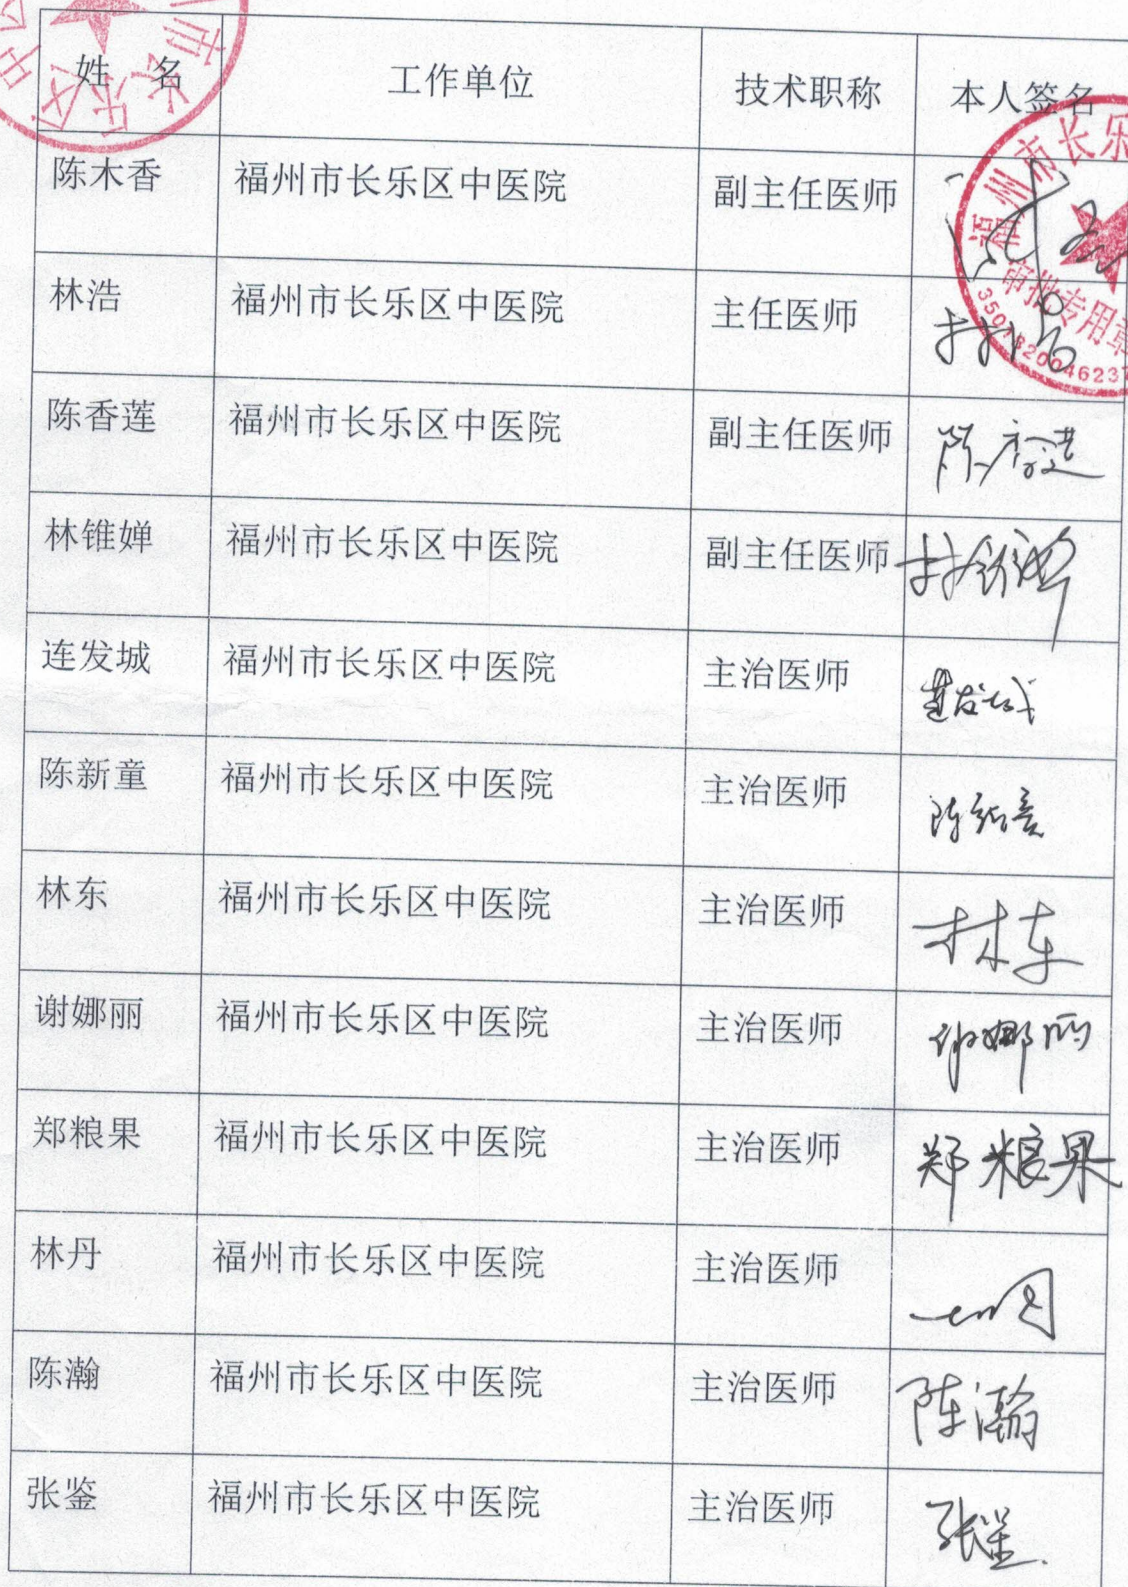 姓 名 工作单位 技术职称 本人签名
陈木香 福州市长乐区中医院 副主任医师
林浩 福州市长乐区中医院 主任医师 林浩
陈香莲 福州市长乐区中医院 副主任医师 陈香莲
林锥婵 福州市长乐区中医院 副主任医师 林锥婵
连发城 福州市长乐区中医院 主治医师 连发城
陈新童 福州市长乐区中医院 主治医师 陈新童
林东 福州市长乐区中医院 主治医师 林东
谢娜丽 福州市长乐区中医院 主治医师 谢娜丽
郑粮果 福州市长乐区中医院 主治医师 郑粮果
林丹 福州市长乐区中医院 主治医师
陈瀚 福州市长乐区中医院 主治医师 陈瀚
张鉴 福州市长乐区中医院 主治医师 张鉴
市长乐区中医
福州市长乐
审批专用章